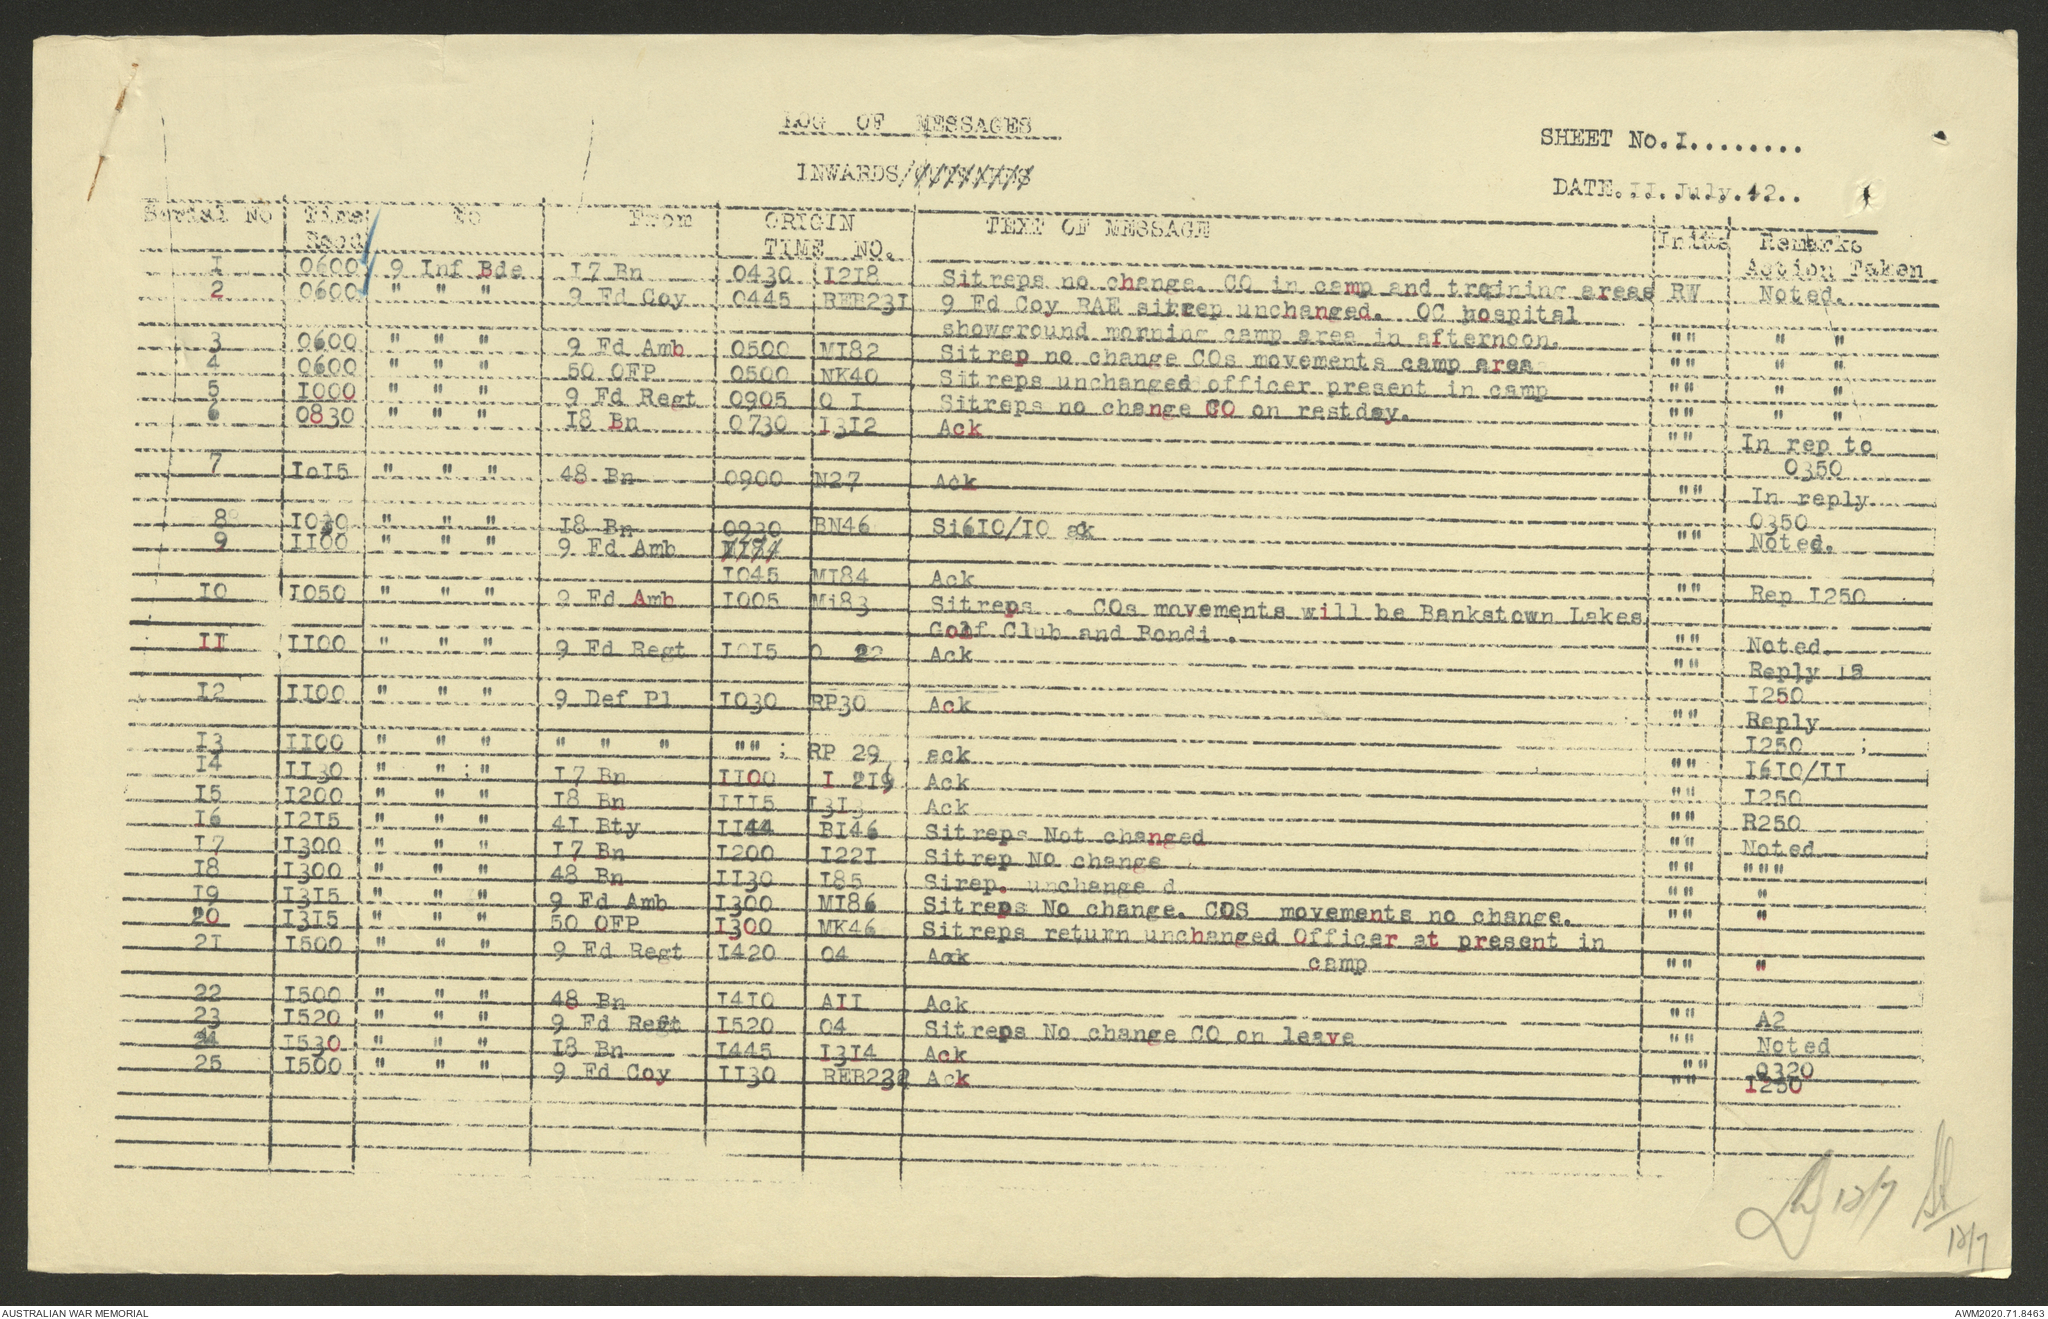 LOG OF MESSAGES
SHEET No.I........
INWARDS/
DATE.II.July.42..
Serial No Time To From ORIGIN TEXT OF MESSAGE Initls Remarks
Recd TIME NO. Action Taken
1 0600 9 Inf Bde I7 Bn 0430 I2I8 Sitreps no change. CO in camp and trqining areas RW Noted.
2 0600 " " " 9 Fd Coy 0445 REB23I 9 Fd Coy RAE sitrep unchanged. OC hospital
showground morning camp area in afternoon. "" " "
3 0600 " " " 9 Fd Amb 0500 MI82 Sitrep no change COs movements camp area "" " "
4 0600 " " " 50 OFP 0500 NK40 Sitreps unchanged officer present in camp "" " "
5 I000 " " " 9 Fd Regt 0905 O I Sitreps no change CO on restday. "" " "
6 0830 " " " I8 Bn 0730 I3I2 Ack "" In rep to
0350
7 I0I5 " " " 48 Bn 0900 N27 Ack "" In reply
0350
8 I030 " " " I8 Bn 0930 BN46 Si6I0/I0 ak "" Noted.
9 II00 " " " 9 Fd Amb
I045 MI84 Ack "" Rep I250
I0 I050 " " " 9 Fd Amb I005 Mi83 Sitreps . COs movements will be Bankstown Lakes
Golf Club and Bondi . "" Noted.
II II00 " " " 9 Fd Regt I0I5 O 22 Ack "" Reply is
I250
I2 II00 " " " 9 Def Pl I030 RP30 Ack "" Reply
I250 ;
I3 II00 " " " " " " "" ; RP 29 ack "" I6I0/II
I4 II30 " " ; " I7 Bn II00 I 2I9 Ack "" I250
I5 I200 " " " I8 Bn III5 I3I3 Ack "" R250
I6 I2I5 " " " 4I Bty II44 BI46 Sitreps Not changed "" Noted
I7 I300 " " " I7 Bn I200 I22I Sitrep No change "" """
I8 I300 " " " 48 Bn II30 I85 Sirep. unchange d "" "
I9 I3I5 " " " 9 Fd Amb I300 MI86 Sitreps No change. COS movements no change. "" "
20 I3I5 " " " 50 OFP I300 MK46 Sitreps return unchanged Officer at present in
camp "" "
2I I500 " " " 9 Fd Regt I420 04 Ack
22 I500 " " " 48 Bn I4I0 AII Ack "" A2
23 I520 " " " 9 Fd Regt I520 04 Sitreps No change CO on leave "" Noted
24 I530 " " " I8 Bn I445 I3I4 Ack "" 0320
25 I500 " " " 9 Fd Coy II30 REB232 Ack "" I250
12/7
12/7
AUSTRALIAN WAR MEMORIAL
AWM2020.71.8463